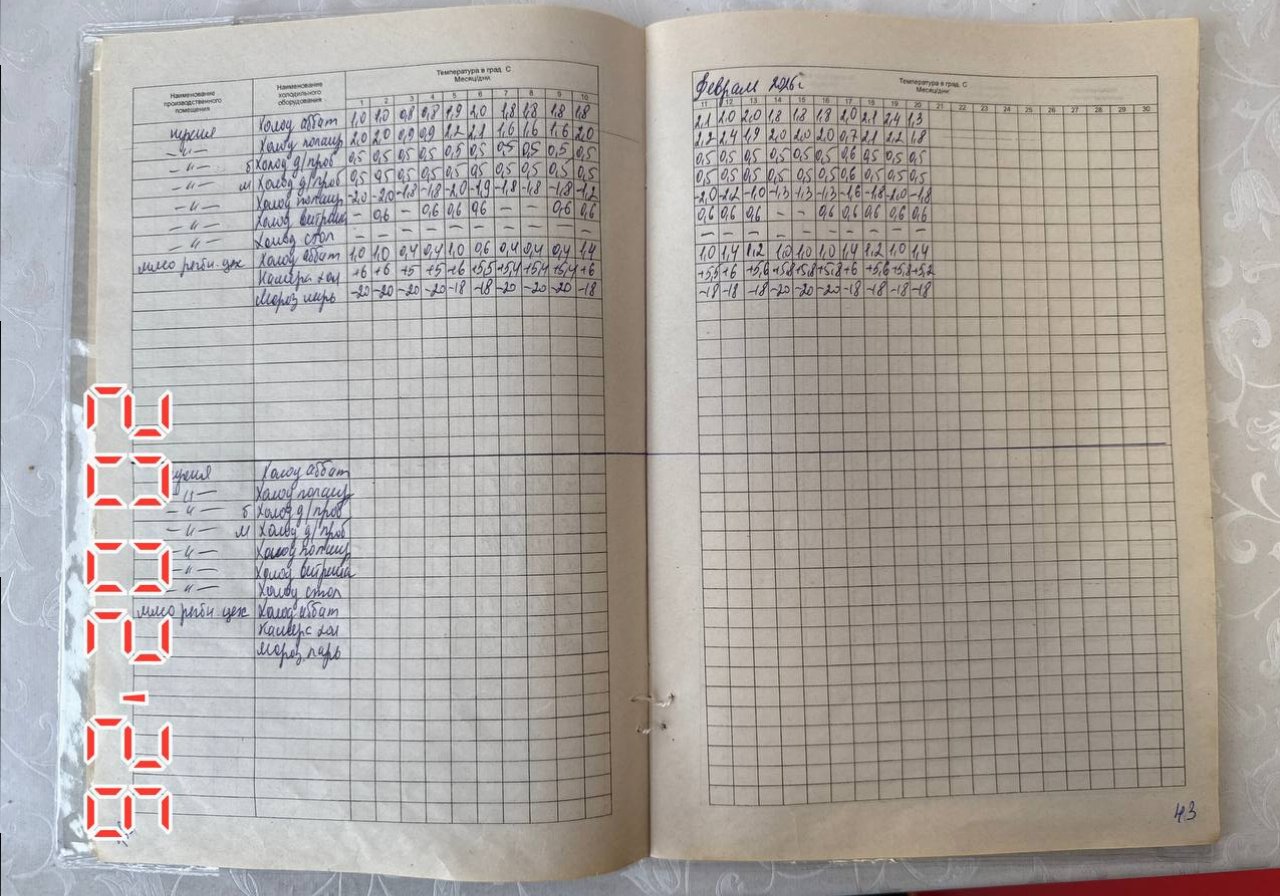 Наименование производственного помещения
Наименование холодильного оборудования
Температура в град. С
Месяц/дни
1 2 3 4 5 6 7 8 9 10
кухня Холод аббат 1,0 1,0 0,8 0,8 1,9 2,0 1,8 1,8 1,8 1,8
—"— Холод 2,0 2,0 0,9 0,9 1,2 2,1 1,6 1,6 1,6 2,0
—"— б Холод д/проб 0,5 0,5 0,5 0,5 0,5 0,5 0,5 0,5 0,5 0,5
—"— м Холод д/проб 0,5 0,5 0,5 0,5 0,5 0,5 0,5 0,5 0,5 0,5
—"— Холод -2,0 -2,0 -1,8 -1,8 -2,0 -1,9 -1,8 -1,8 -1,8 -1,2
—"— Холод витрина — 0,6 — 0,6 0,6 0,6 — — 0,6 0,6
—"— Холод стол — — — — — — — — — —
цех Холод аббат 1,0 1,0 0,4 0,4 1,0 0,6 0,4 0,4 0,4 1,4
Камера хол +6 +6 +5 +5 +6 +5,5 +5,4 +5,4 +5,4 +6
Мороз ларь -20 -20 -20 -20 -18 -18 -20 -20 -20 -18
кухня Холод аббат
—"— Холод
—"— б Холод д/проб
—"— м Холод д/проб
—"— Холод
—"— Холод витрина
—"— Холод стол
цех Холод аббат
Камера хол
Мороз ларь
Февраль 2026г
Температура в град. С
Месяц/дни
11 12 13 14 15 16 17 18 19 20 21 22 23 24 25 26 27 28 29 30
2,1 2,0 2,0 1,8 1,8 1,8 2,0 2,1 2,4 1,3
2,2 2,4 1,9 2,0 2,0 2,0 0,7 2,1 2,2 1,8
0,5 0,5 0,5 0,5 0,5 0,5 0,6 0,5 0,5 0,5
0,5 0,5 0,5 0,5 0,5 0,5 0,6 0,5 0,5 0,5
-2,0 -2,2 -1,0 -1,3 -1,3 -1,3 -1,6 -1,8 -2,0 -1,8
0,6 0,6 0,6 — — 0,6 0,6 0,6 0,6 0,6
— — — — — — — — — —
1,0 1,4 1,2 1,0 1,0 1,0 1,4 1,2 1,0 1,4
+5,5 +6 +5,6 +5,8 +5,8 +5,8 +6 +5,6 +5,8 +5,2
-18 -18 -18 -20 -20 -20 -18 -18 -18 -18
43